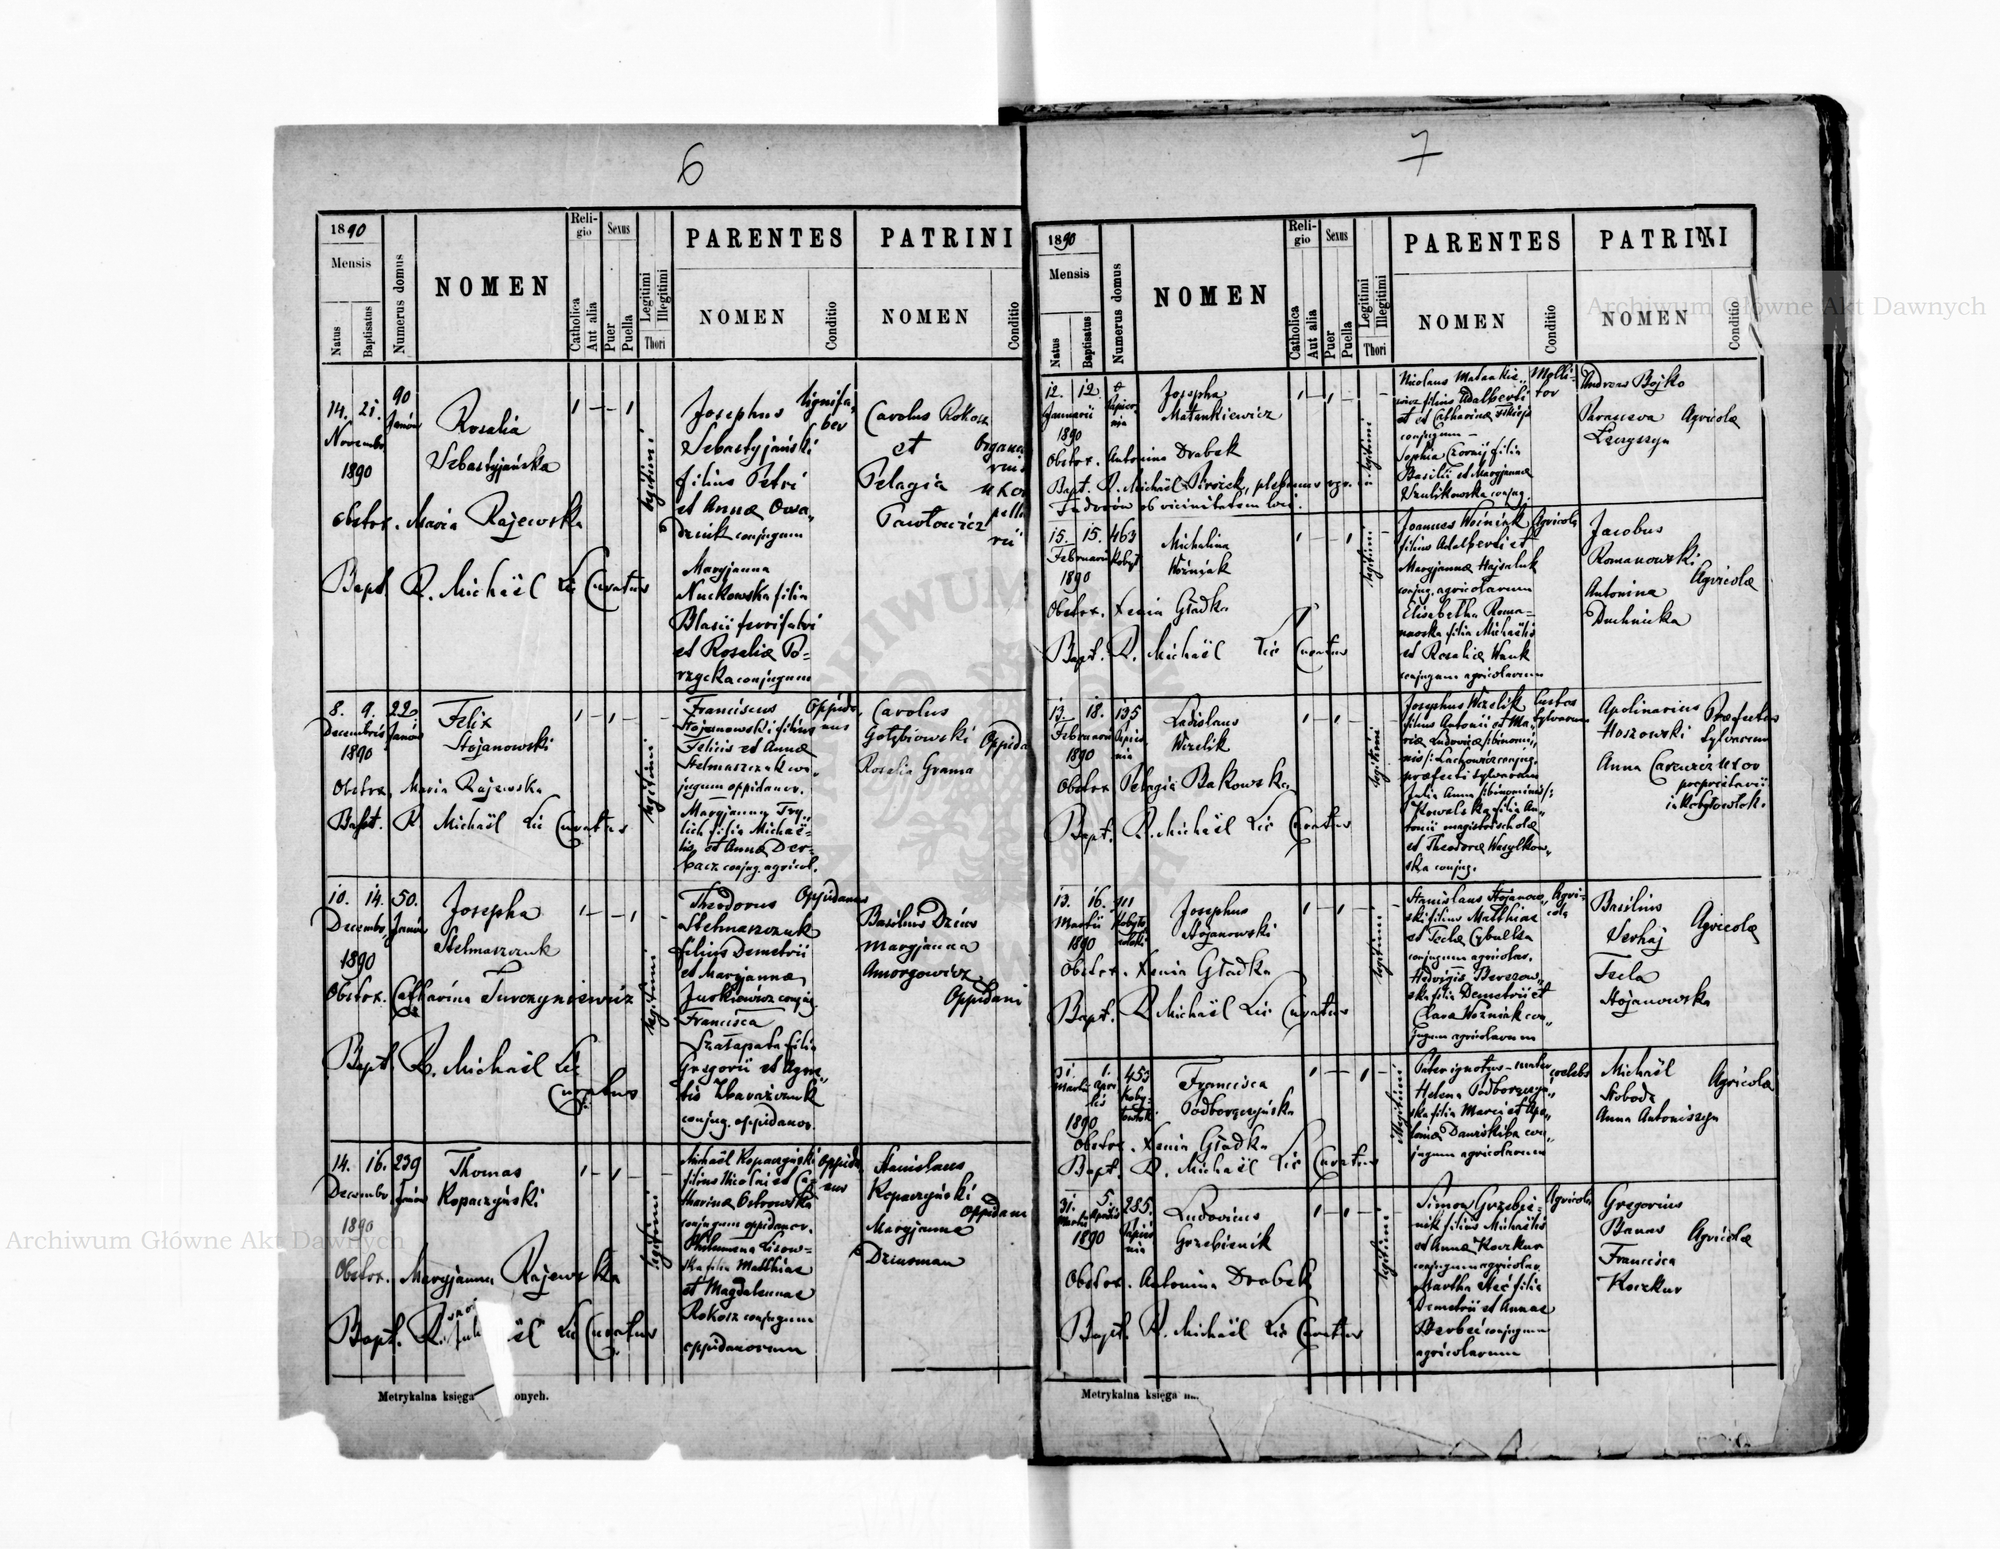 6
1890
Mensis
Natus
Baptisatus
Numerus domus
NOMEN
Religio
Catholica
Aut alia
Sexus
Puer
Puella
Legitimi
Illegitimi
Thori
PARENTES
NOMEN
Conditio
PATRINI
NOMEN
Conditio
14. 21. 90
Novembr. Janów
1890
Rosalia
Sebastyjańska
obstetr. Maria Rajewska
Bapt. R. Michaël Lic Curatus
legitimi
Josephus
Sebastyjański
filius Petri
et Annæ
conjugum
Maryjanna
Nuckowska filia
Blasii
et Rosaliæ Po-
rzycka conjugum
Carolus Rokosz
et
Pelagia
Pawłowicz
8. 9. 220
Decembris Janów
1890
Felix
Stojanowski
Obstetr. Maria Rajewska
Bapt. R. Michaël Lic Curatus
legitimi
Franciscus
Stojanowski filius
Felicis et Annæ
Stelmaszczuk con-
jugum oppidanor.
Maryjanna Fry-
lich filia Michaë-
lis et Annæ Der-
kacz conjug. agricol.
Oppidanus
Carolus
Gołębiowski
Rosalia Grama
Oppida
10. 14. 50.
Decembr. Janów
1890
Josepha
Stelmaszczuk
Obstetr. Catharina Turczyniewicz
Bapt. R. Michaël Lic
Curatus
legitimi
Theodorus
Stelmaszczuk
filius Demetrii
et Maryjannæ
Jurkiewicz conjug.
Francisca
Szatapata filia
Gregorii et Aga-
conjug. oppidanor.
Oppidanus
Basilius Dziers
Maryjanna
Amorgowicz
Oppidani
14. 16. 239
Decembr. Janów
1890
Thomas
Kopaczyński
Obstetr. Maryjanna Rajewska
Bapt. R. Lic Curatus
legitimi
Michaël Kopaczyński
filius Nicolai et Ca-
tharinæ Ostrowska
conjugum oppidanor.
Philomena Lisow-
ska filia Matthiae
et Magdalennae
Rokosz conjugum
oppidanorum
Stanislaus
Kopaczyński
Maryjanna
Dziusman
Oppidani
Metrykalna księga
onych.
7
1890
Mensis
Natus
Baptisatus
Numerus domus
NOMEN
Religio
Catholica
Aut alia
Sexus
Puer
Puella
Legitimi
Illegitimi
Thori
PARENTES
NOMEN
Conditio
PATRINI
NOMEN
Conditio
12. 12.
Januarii
1890
Josepha
Matankiewicz
Obstetr. Antonina Drabek
Bapt. R. Michaël
ob vicinitatem loci.
legitimi
Nicolaus Matankie-
wicz filius Adalberti
et Catharinæ
conjugum
Sophia Czornij filia
Basilii et Maryjannæ
conjug.
Molitor
Andreas Bojko
Parasceva
Agricolæ
15. 15. 463
Februarii
1890
Michalina
Woźniak
Obstetr. Xenia Gładka
Bapt. R. Michaël Lic Curatus
legitimi
Joannes Woźniak
filius Adalberti et
Maryjannæ Hajsaluk
conjug. agricolarum
Elisabetha Roma-
nowska filia Michaëlis
et Rosaliæ Wauk
conjugum agricolarum
Agricola
Jacobus
Romanowski
Antonina
Duchnicka
Agricolæ
13. 18. 135
Februarii
1890
Ladislaus
Wzelik
Obstetr. Pelagia Bakowska
Bapt. R. Michaël Lic Curatus
legitimi
Josephus Wzelik
filius Antonii et Ma-
riæ Ludovicæ
Lachowicz conjug.
præfecti sylvarum
Julia Anna
Kowalska filia An-
tonii magistri scholæ
et Theodoræ Wasylkow-
ska conjug.
Custos
sylvarum
Apolinarius
Hoszowski
Præfectus
sylvarum
Anna
uxor
proprietarii
13. 16. 111
Martii
1890
Josephus
Stojanowski
Obstetr. Xenia Gładka
Bapt. R. Michaël Lic Curatus
legitimi
Stanislaus Stojanow-
ski filius Matthiae
et Teclæ Cybulka
conjugum agricolar.
Hedvigis Berezow-
ska filia Demetrii et
Clara Woźniak con-
jugum agricolarum
Agricola
Basilius
Verhaj
Tecla
Stojanowska
Agricolæ
31. 1. 453
Martii Aprilis
1890
Francisca
Podborzyńska
Obstetr. Xenia Gładka
Bapt. R. Michaël Lic Curatus
Illegitimi
Pater ignotus - mater
Helena Podborzyń-
ska filia Marci et Apo-
loniæ
con-
jugum agricolarum
coelebs
Michaël
Słoboda
Anna Antoniszyn
Agricolæ
31. 5. 285.
Martii Aprilis
1890
Ludovicus
Grzebienik
Obstetr. Antonina Drabek
Bapt. R. Michaël Lic Curatus
legitimi
Simon Grzebie-
nik filius Michaëlis
et Annæ Koczkur
conjugum agricolar.
Martha Stec filia
Demetrii et Annae
conjugum
agricolarum
Agricola
Gregorius
Banas
Francisca
Koczkur
Agricolæ
Metrykalna księga
Archiwum Główne Akt Dawnych
Archiwum Główne Akt Dawnych